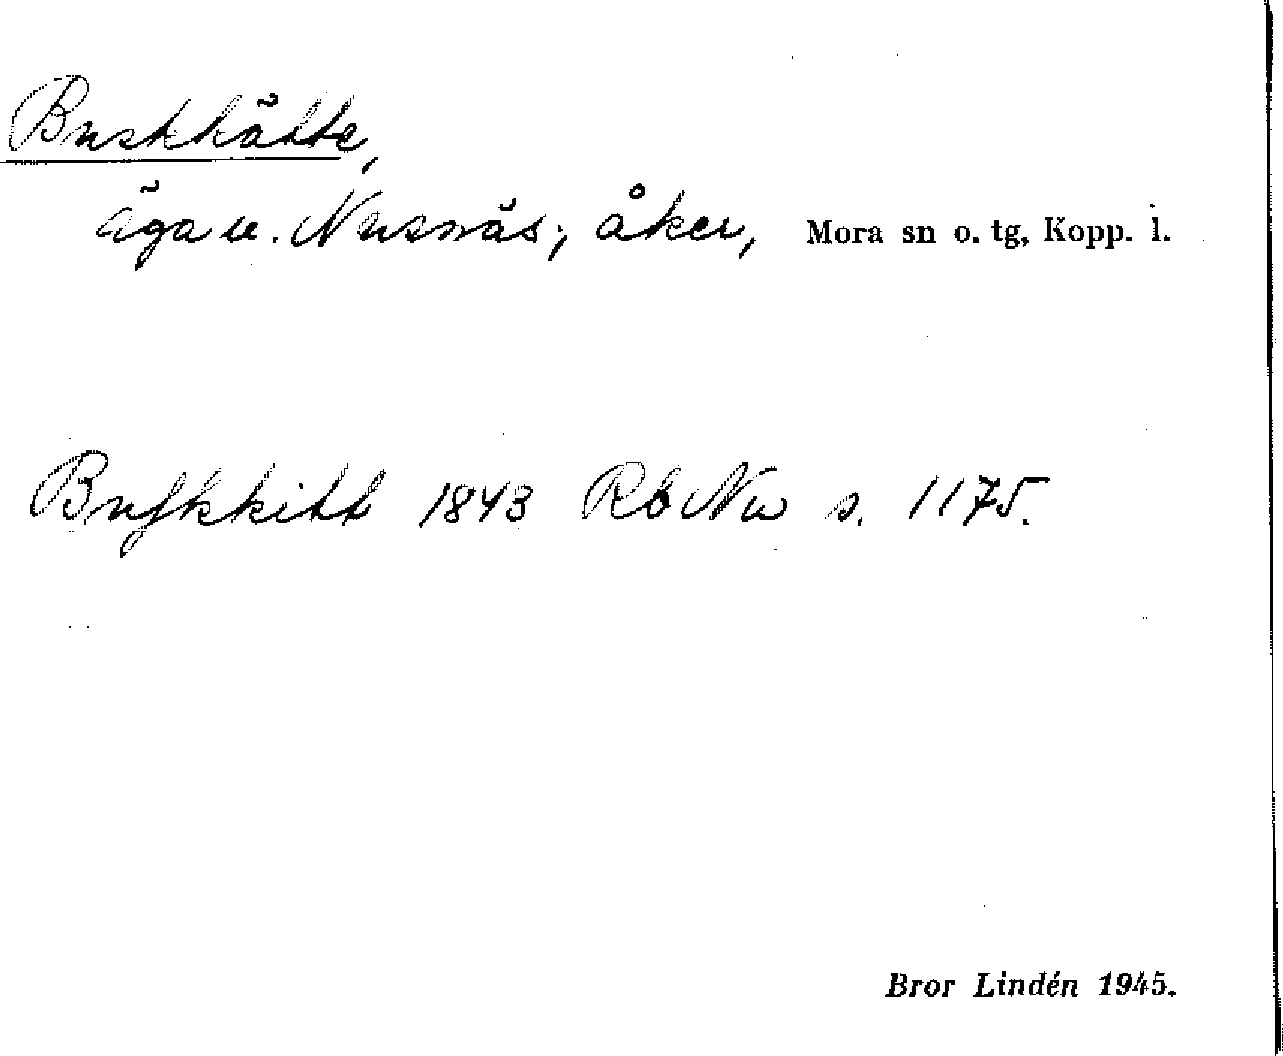 Buskkätte,
äga u. Nusnäs; åker, Mora sn o. tg, Kopp. l.
Buſkkitt 1843 Rb Nu s. 1175.
Bror Lindén 1945.